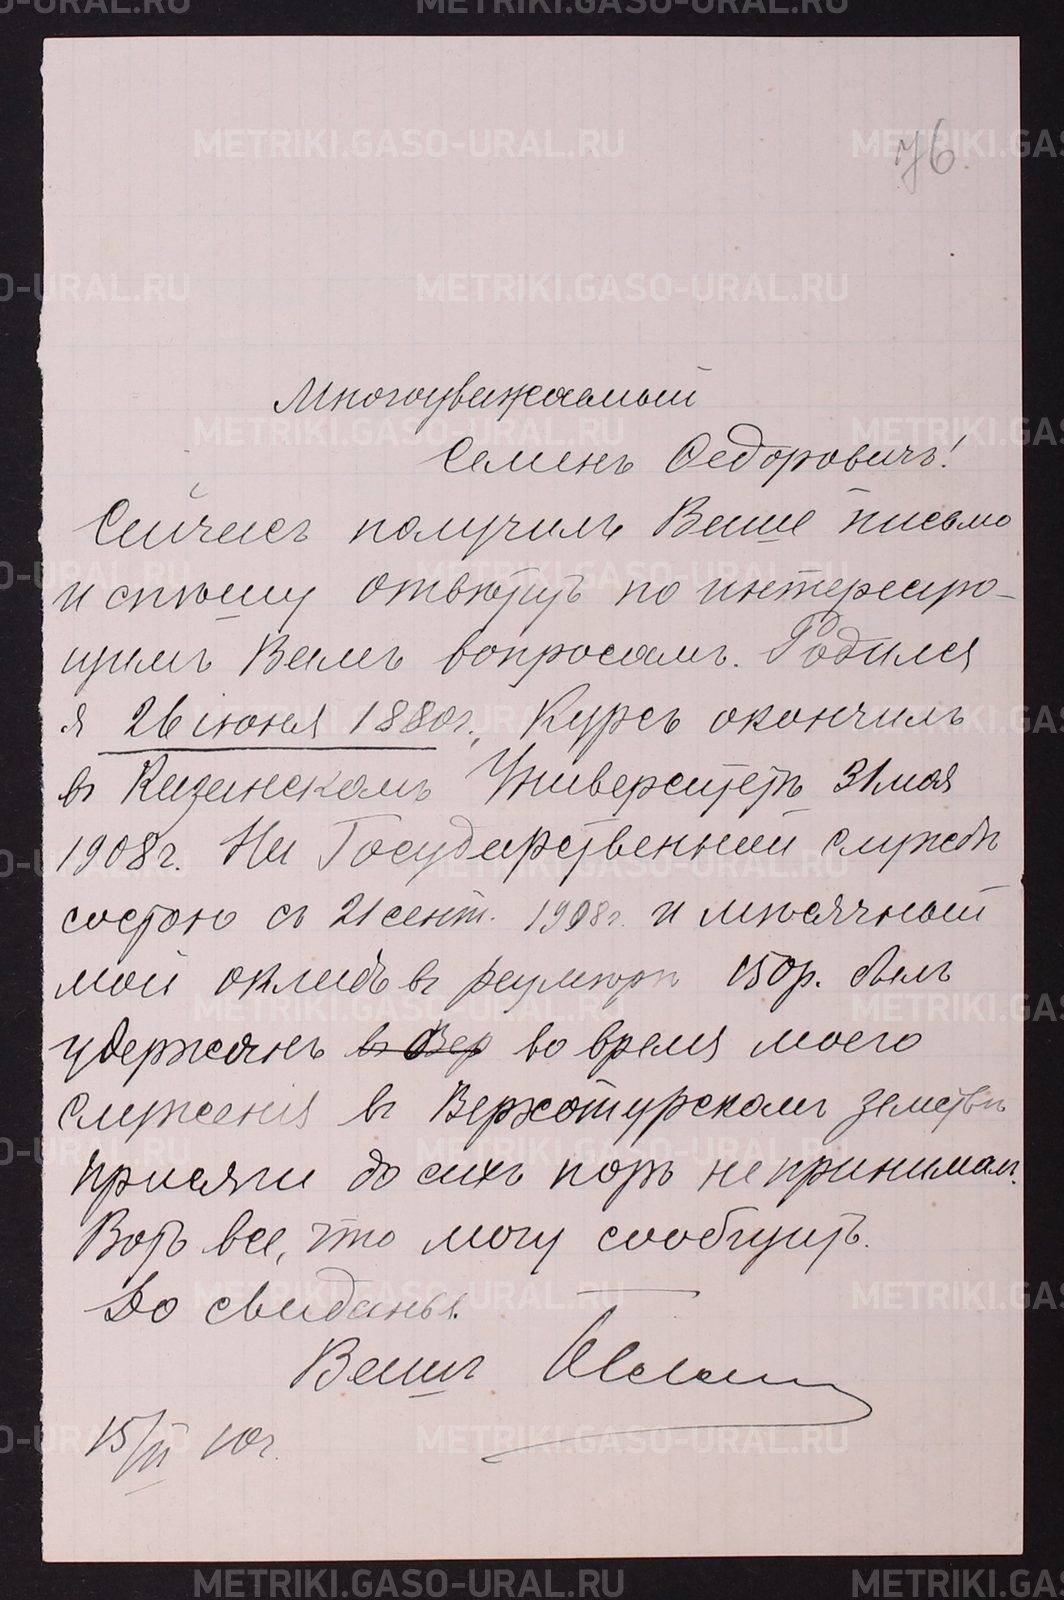 76
Многоуважаемый
Семенъ Федоровичъ!
Сейчасъ получилъ Ваше письмо
и спѣшу отвѣтить по интересую-
щимъ Васъ вопросамъ. Родился
я 26 іюня 1880г. Курсъ окончилъ
въ Казанскомъ Университетѣ 31 мая
1908г. На Государственной службѣ
состою съ 21 сент. 1908г. и мѣсячный
мой окладъ въ размѣрѣ 150р. былъ
удержанъ въ Вер во время моего
служенія въ Верхотурскомъ земствѣ
присяги до сихъ поръ не принималъ.
Вотъ все, что могу сообщить.
До свиданья.
Вашъ
15/II 10г.
METRIKI.GASO-URAL.RU